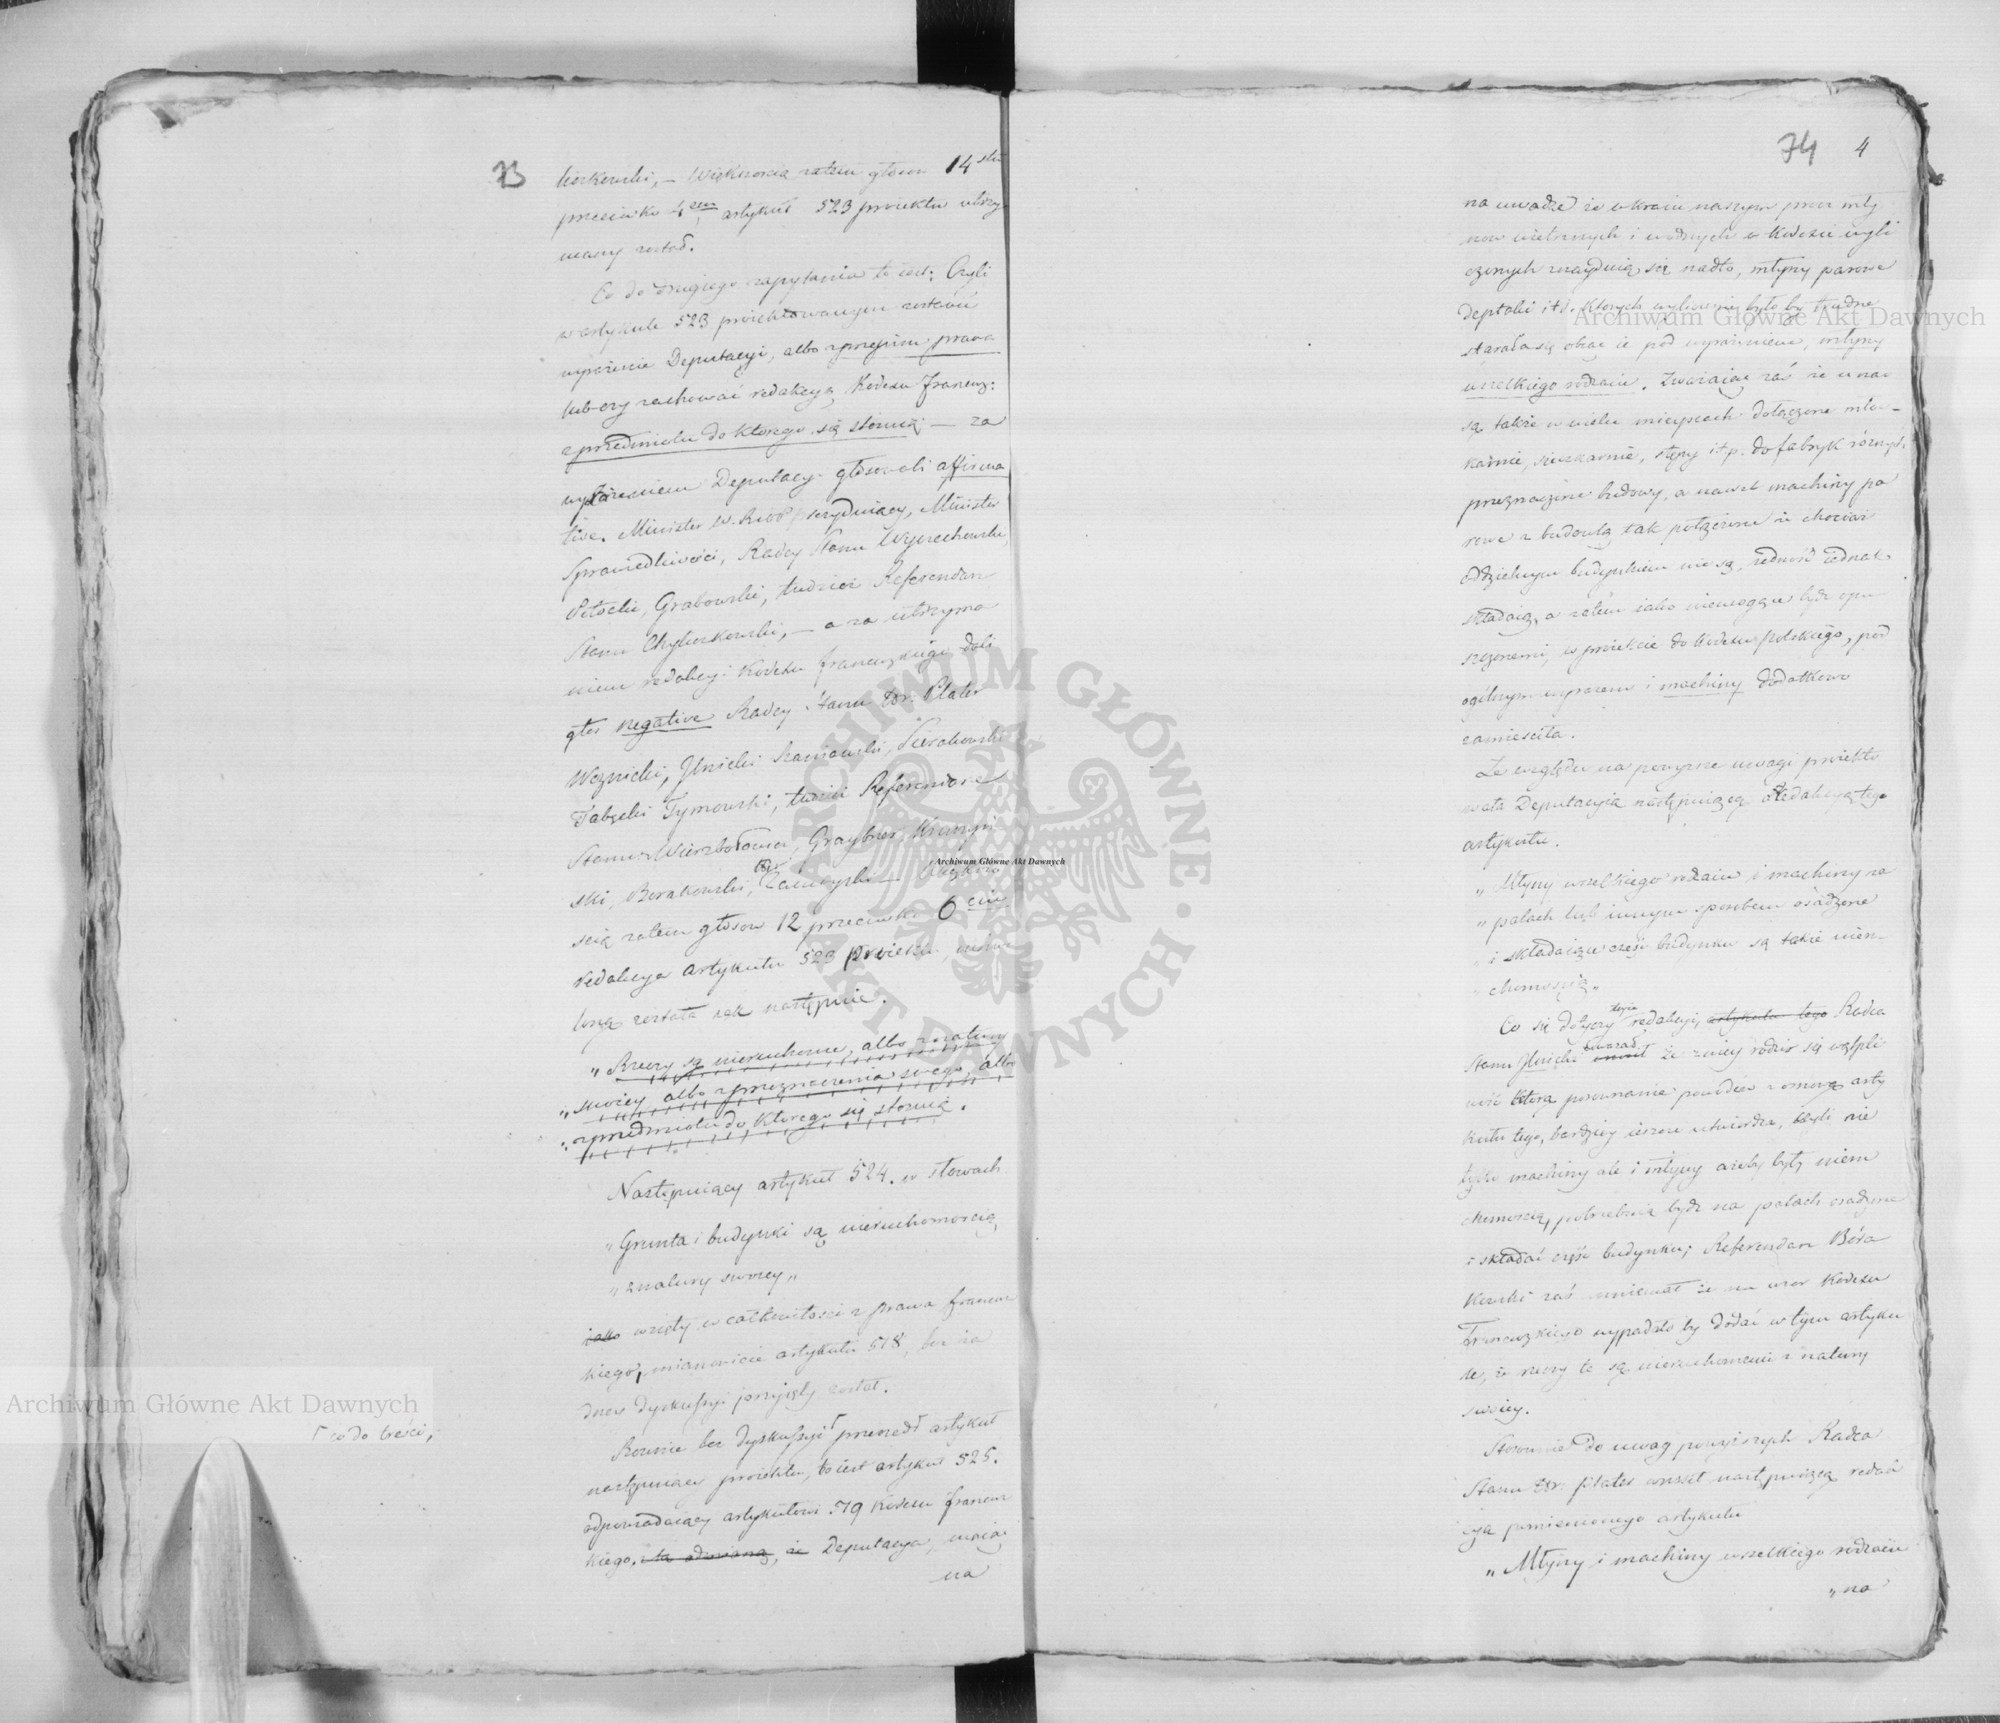 73
liczkowski, — Większością zatem głosow 14stu
przeciwko 4em artykuł 523 proiektu utrzy
many został.
Co do drugiego zapytania to iest: Czyli
w artykule 523 proiektowanym zostawić
wyrażenie Deputacyi, albo z przepisu prawa
lub czy zachować redakcyą Kodexu francuz:
z przedmiotu do którego się stosują — za
wyrażeniem Deputacyi głosowali affirma
tive. Minister prezyduiący, Minister
Sprawiedliwości, Radcy Stanu Wyczechowski,
Potocki, Grabowski, tudzież Referendarz
Stanu — a za utrzyma
niem redakcyi Kodexu francuzkiego dali
głos negative Radcy Stanu Hr. Plater
Woznicki, Sierakowski
Tymowski, tudzież Referendarze
Stanu Wierzbołowicz, Graybner,
ski, Borakowski, Hr. Zamoyski — Większo
scią zatem głosow 12 przeciwko 6ciu
redakcya artykułu 523 proiektu
loną została iak następuie.
„ Rzeczy są nieruchome, albo z natury
„ swoiey albo z przeznaczenia swego, albo
„ z przedmiotu do którego się stosuią.
Następuiący artykuł 524. w słowach
„ Grunta i budynki są nieruchomoscią
„ z natury swoiey „
iako wzięty w całkowitości z prawa francuz
kiego, mianowicie artykułu 518, bez ża
dney dyskussyi przyięty został.
Rownie bez dyskussyi przeszedł artykuł
następuiący proiektu, to iest artykuł 525.
odpowiadaiący artykułowi 519 Kodexu francuz
kiego. że Deputacya, maiąc
na
co do treści,
74
4
na uwadze że w kraiu naszym procz mły
now wietrznych i wodnych w Kodexie wyli
czonych znayduią się nadto, młyny parowe
deptaki itd. ktorych wyliczenie było by trudne
starała się obiąć ie pod wyrażeniem, młyny
wszelkiego rodzaiu. Zważaiąc zaś że u nas
są także w wielu mieyscach dołączone młoc-
karnie, sieczkarnie, stępy itp. do fabryk różnych
przeznaczone budowy, a nawet machiny pa
rowe z budowlą tak połączone że chociaż
oddzielnym budynkiem nie są, iedność iednak
składaią, a zatem iako niemogące bydz opu
szczonemi, w proiekcie do Kodexu Polskiego, pod
ogólnym wyrazem i machiny dodatkowo
zamiescita.
Ze względu na powyższe uwagi proiekto
wała Deputacyia następuiącą redakcyą tego
artykułu.
„ Młyny wszelkiego rodzaiu i machiny na
„ palach lub innym sposobem osadzone
„ i składaiące część budynku są także nieru-
„ chomością „
Co się dotyczy teyże redakcyi, artykułu tego Radca
Stanu uważał że z niey rodzi się wątpli
wość ktorą porownanie powodów z osnową arty
kułu tego, bardziey ieszcze utwierdza, czyli nie
tylko machiny ale i młyny ażeby były nieru
chomością, potrzebuią bydz na palach osadzone
i składać część budynku; Referendarz Bora
kowski zaś mniemał że na wzor Kodexu
Francuzkiego wypadało by dodać w tym artyku
le, że rzeczy te są nieruchomemi z natury
swoiey.
Stosownie do uwag powyższych Radca
Stanu Hr. Plater wniosł następuiącą redak
cyą pomienionego artykułu
„ Młyny i machiny wszelkiego rodzaiu
„ na
Archiwum Główne Akt Dawnych
Archiwum Główne Akt Dawnych
Archiwum Główne Akt Dawnych
ARCHIWUM GŁÓWNE · AKT DAWNYCH ·